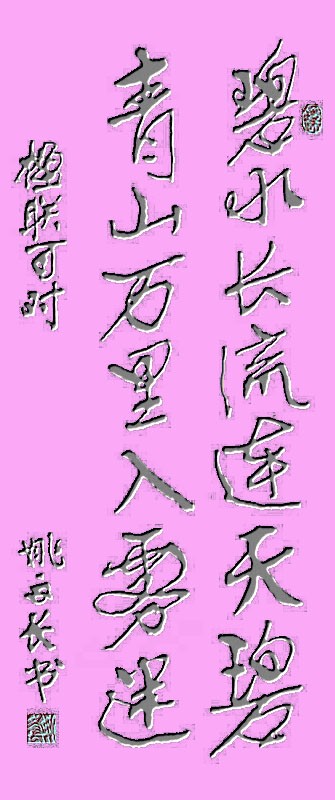 碧水长流连天碧
青山万里入雾迷
楹联可时
姚云长书